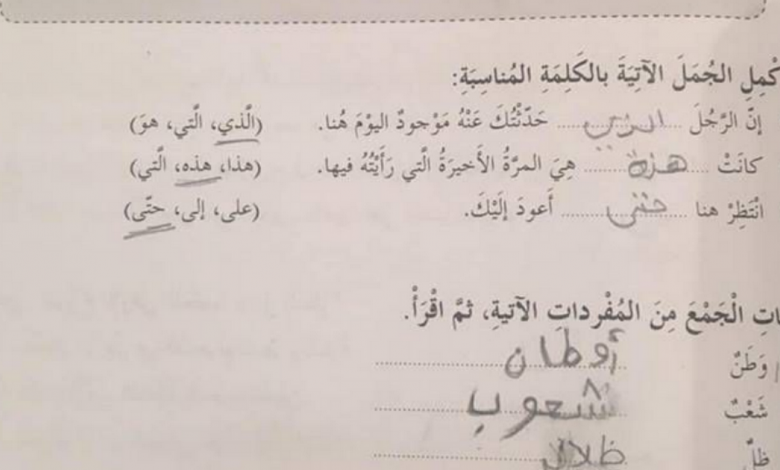 كْمِلِ الجُمَلَ الآتِيَةَ بالكَلِمَةِ المُناسِبَةِ:
إنَّ الرَّجُلَ الذي حَدَّثْتُكَ عَنْهُ مَوْجودٌ اليْوْمَ هُنا. (الَّذي، الَّتي، هوَ)
كانَتْ هذه هِيَ المرَّةُ الأَخيرَةُ الَّتي رَأَيْتُهُ فيها. (هذا، هذه، الَّتي)
انْتَظِرْ هنا حتى أَعودَ إلَيْكَ. (على، إلى، حتّى)
اتِ الْجَمْعَ مِنَ المُفْرداتِ الآتيةِ، ثمَّ اقْرَأْ.
وَطَنٌ أوطان
شَعْبٌ شعوب
ظلٌّ ظلال